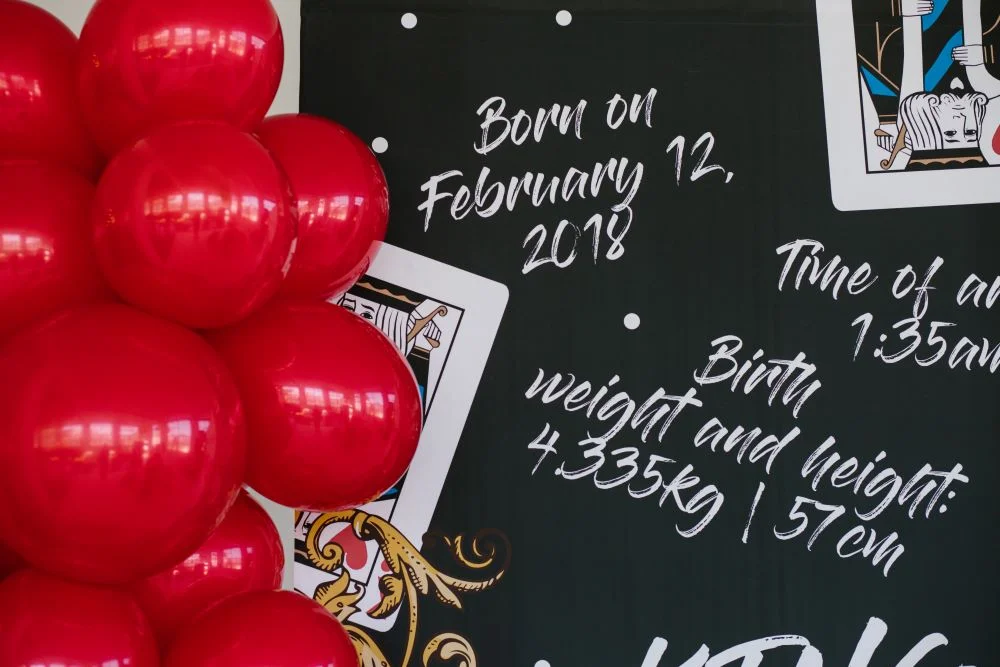 Born on
February 12,
2018
Time of
1:35am
Birth
weight and height:
4.335kg | 57cm